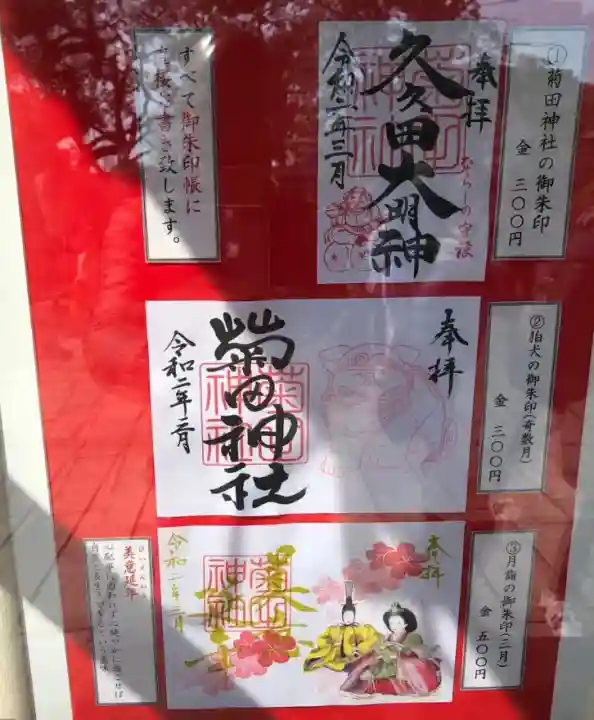 ①菊田神社の御朱印
金 三〇〇円
奉拝
久久田大明神
ならしの守護
菊田神社
令和二年三月
すべて御朱印帳に
直接お書き致します。
②狛犬の御朱印(奇数月)
金 三〇〇円
奉拝
菊田神社
菊田神社
令和二年三月
③月詣の御朱印(三月)
金 五〇〇円
奉拝
菊田神社
令和二年三月
美意延年